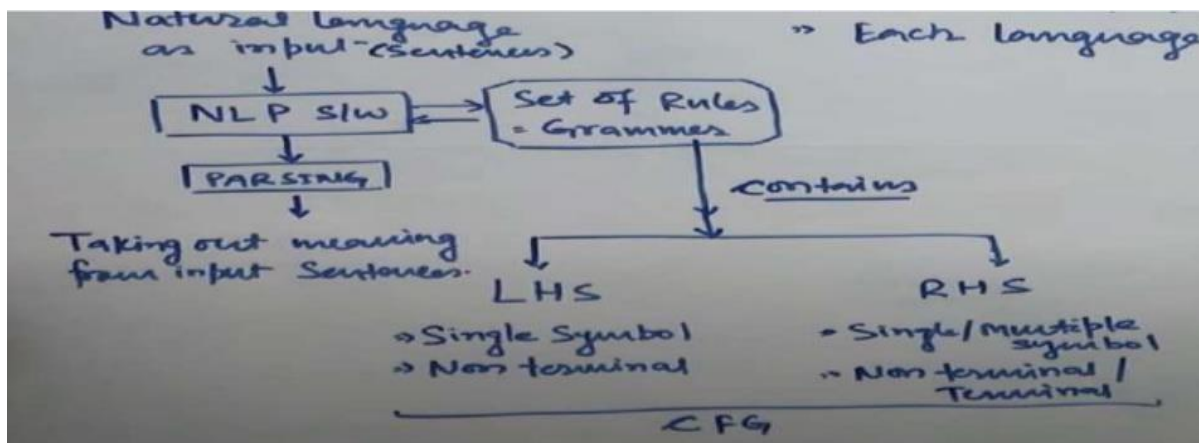 Natural language
as input (Sentences)
» Each language
NLP S/W
Set of Rules
= Grammes
PARSING
contains
Taking out meaning
from input Sentences.
LHS
RHS
» Single Symbol
» Non terminal
» Single/multiple
symbol
» Non terminal /
Terminal
CFG